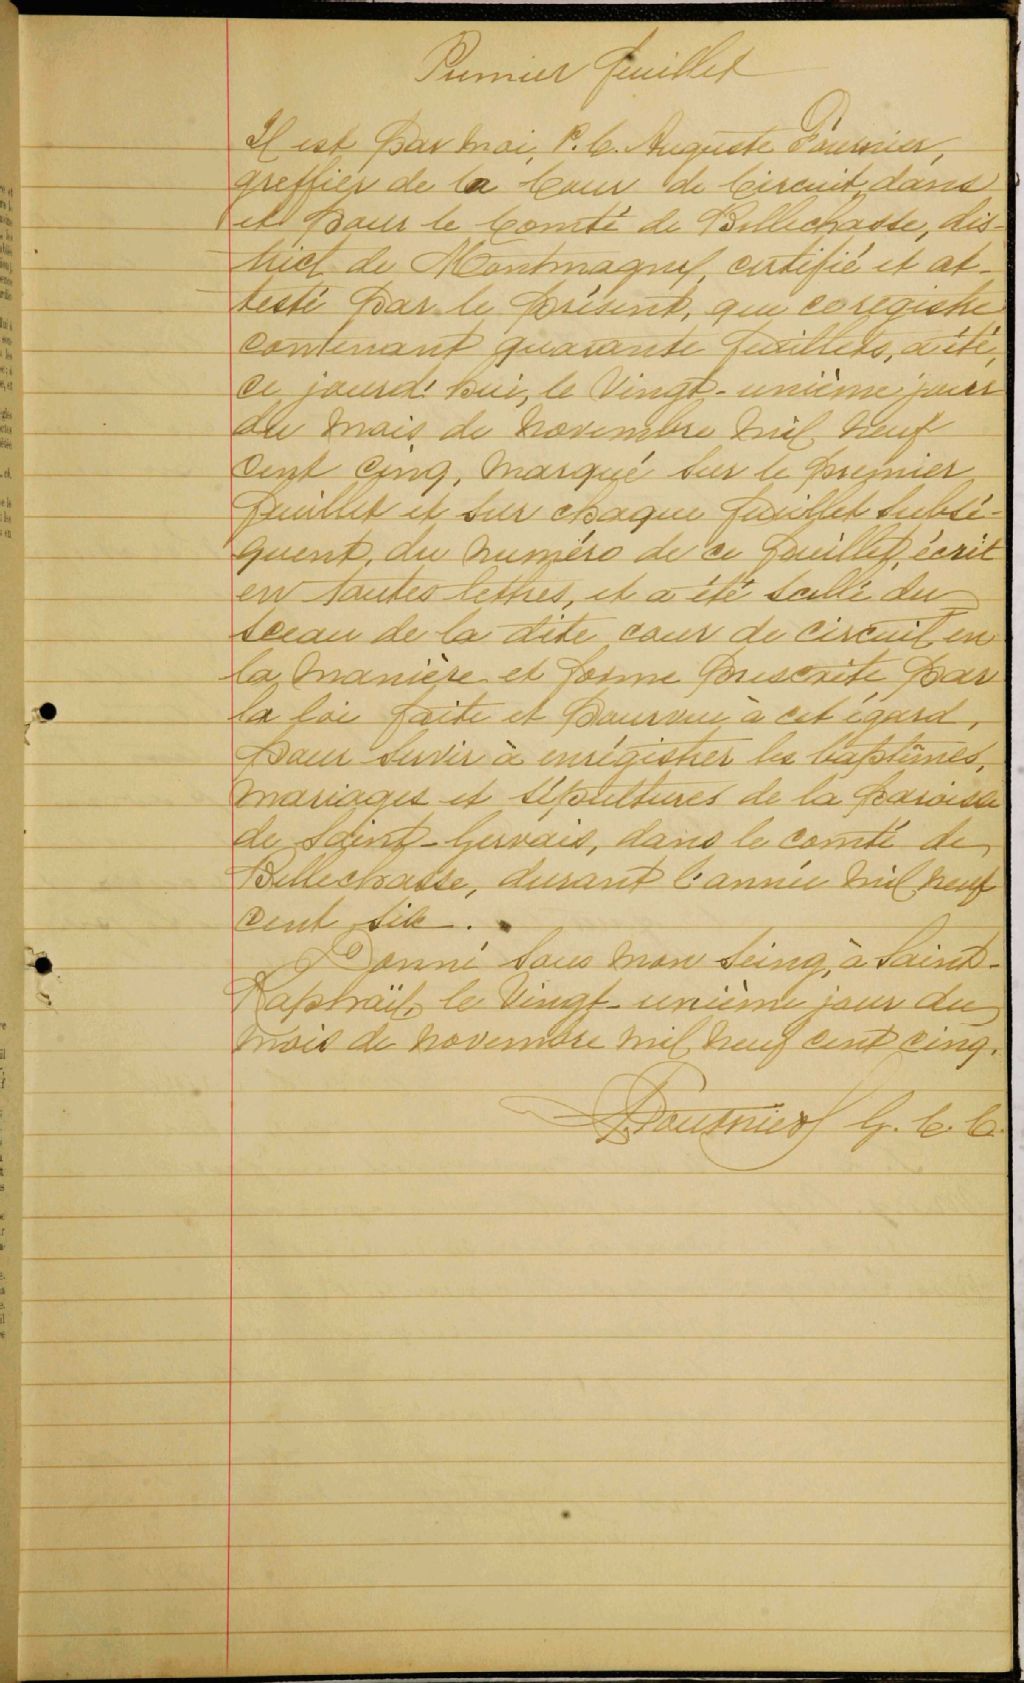 Premier feuillet
Il est par moi, P. C. Auguste Fournier,
greffier de la Cour de Circuit, dans
et pour le Comté de Bellechasse, dis-
trict de Montmagny, certifié et at-
testé par le présent, que ce registre
contenant quarante feuillets, a été,
ce jourd'hui, le vingt-unième jour
du mois de novembre mil neuf
cent cinq, marqué sur le premier
feuillet et sur chaque feuillet subsé-
quent, du numéro de ce feuillet, écrit
en toutes lettres, et a été scellé du
sceau de la dite cour de circuit en
la manière et forme prescrite par
la loi faite et pourvue à cet égard,
pour servir à enrégistrer les baptêmes,
mariages et sépultures de la paroisse
de Saint-Gervais, dans le comté de
Bellechasse, durant l'année mil neuf
cent six.
Donné sous mon seing, à Saint-
Raphaël, le vingt-unième jour du
mois de novembre mil neuf cent cinq.
Fournier G. C. C.